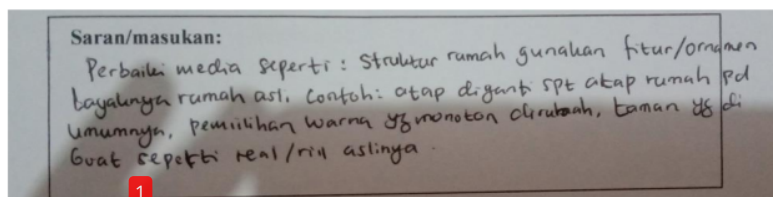 Saran/masukan:
Perbaiki media seperti : Struktur rumah gunakan fitur/ornamen
layaknya rumah asli. Contoh: atap diganti spt atap rumah pd
umumnya, pemilihan warna yg monoton dirubah, taman yg di
buat seperti real/riil aslinya.
1